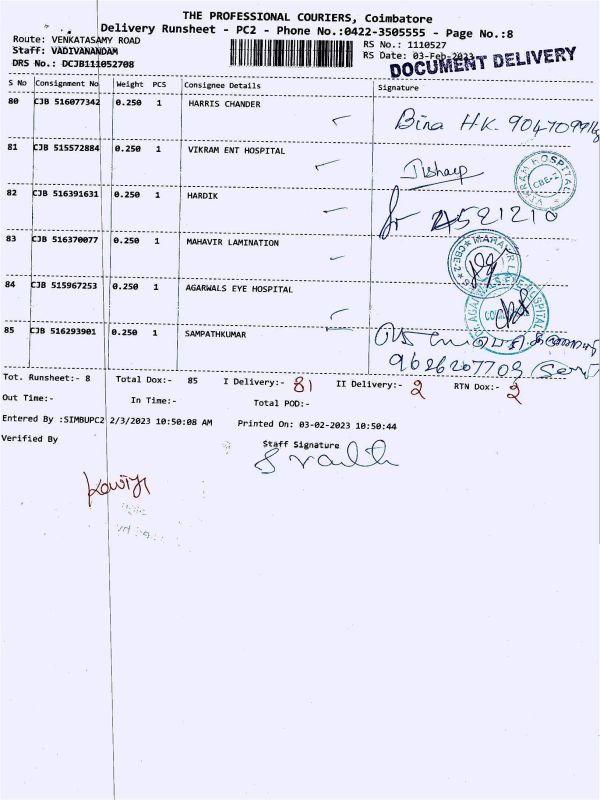 THE PROFESSIONAL COURIERS, Coimbatore
Delivery Runsheet - PC2 - Phone No.:0422-3505555 - Page No.:8
Route: VENKATASAMY ROAD RS No.: 1110527
Staff: VADIVANANDAM RS Date: 03-Feb-2023
DRS No.: DCJB111052708 DOCUMENT DELIVERY
S No Consignment No Weight PCS Consignee Details Signature
80 CJB 516077342 0.250 1 HARRIS CHANDER Bina H.K.
81 CJB 515572884 0.250 1 VIKRAM ENT HOSPITAL
VIKRAM HOSPITAL CBE-2
82 CJB 516391631 0.250 1 HARDIK
83 CJB 516370077 0.250 1 MAHAVIR LAMINATION
MAHAVIR CBE-2
84 CJB 515967253 0.250 1 AGARWALS EYE HOSPITAL
DR. AGARWAL'S EYE HOSPITAL
85 CJB 516293901 0.250 1 SAMPATHKUMAR
9626267703
Tot. Runsheet:- 8 Total Dox:- 85 I Delivery:- 81 II Delivery:- 2 RTN Dox:- 2
Out Time:- In Time:- Total POD:-
Entered By :SIMBUPC2 2/3/2023 10:50:08 AM Printed On: 03-02-2023 10:50:44
Verified By Staff Signature